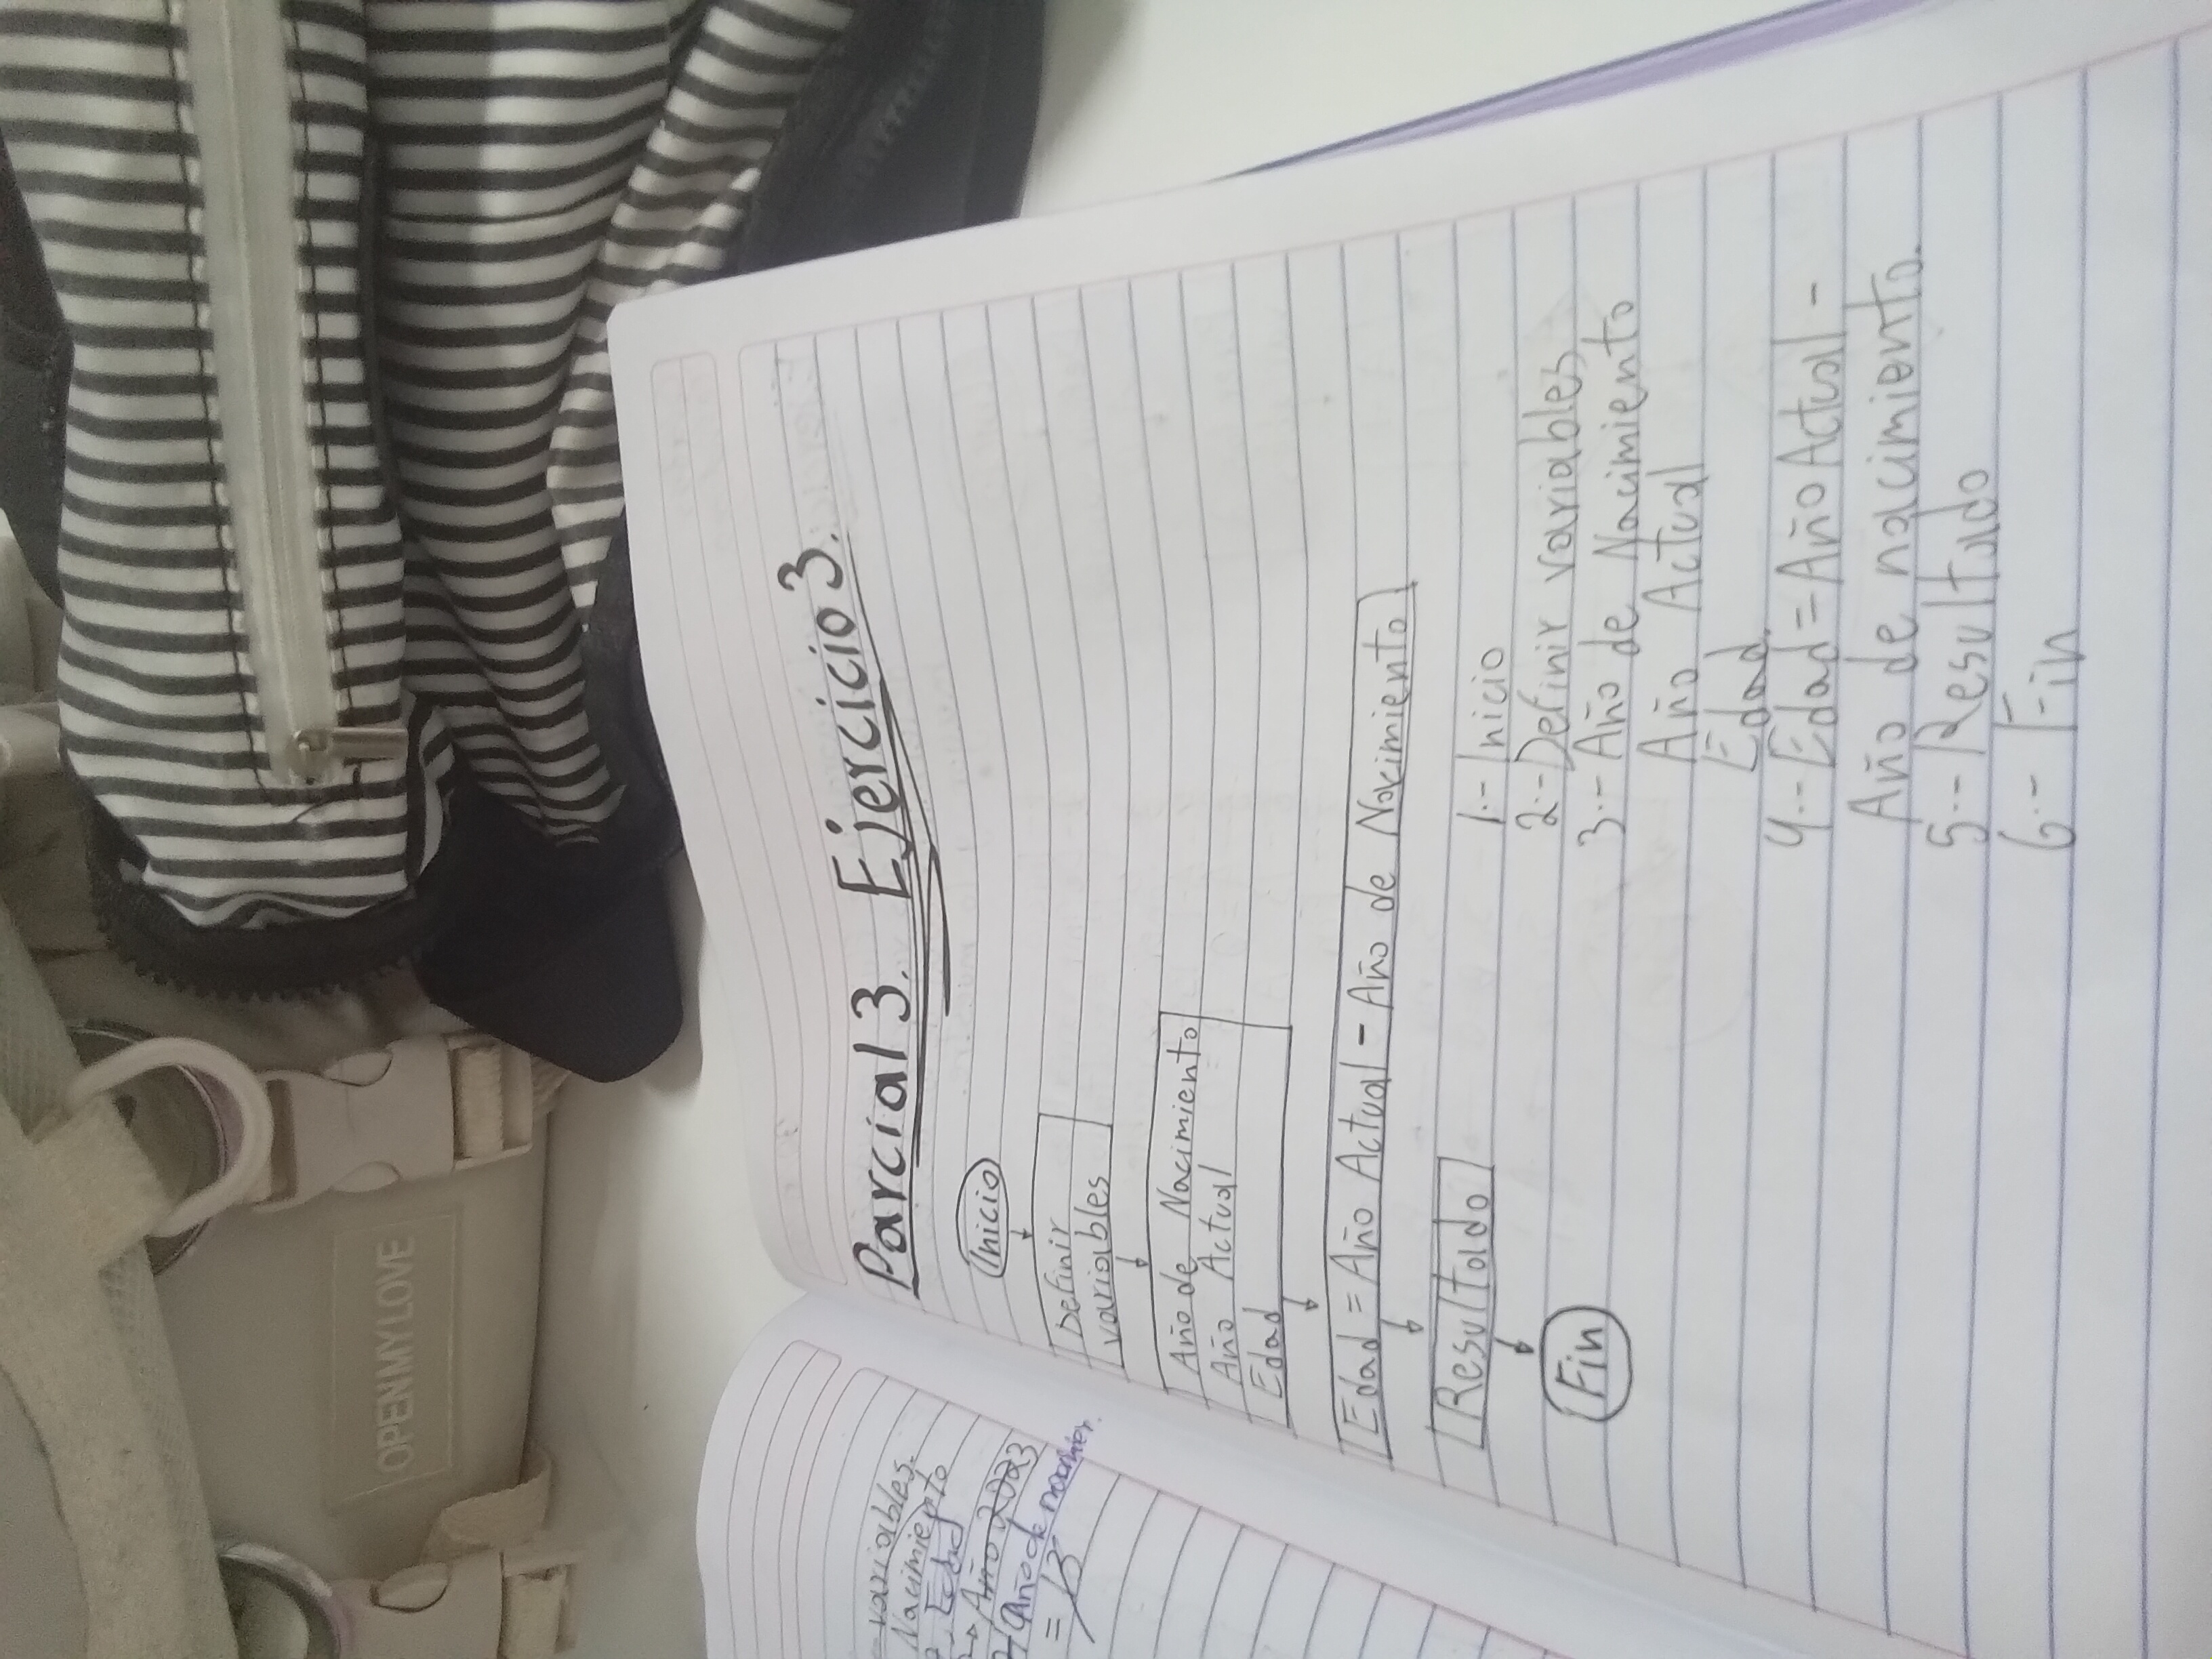 Parcial 3. Ejercicio 3.
Inicio
Definir
variables
Año de Nacimiento
Año Actual
Edad
Edad = Año Actual - Año de Nacimiento
Resultado
Fin
1.- Inicio
2.- Definir variables
3.- Año de Nacimiento
Año Actual
Edad
4.- Edad = Año Actual -
Año de nacimiento.
5.- Resultado
6.- Fin
variables.
Nacimiento
Edad
Año 2023
Año de
=
OPENMYLOVE